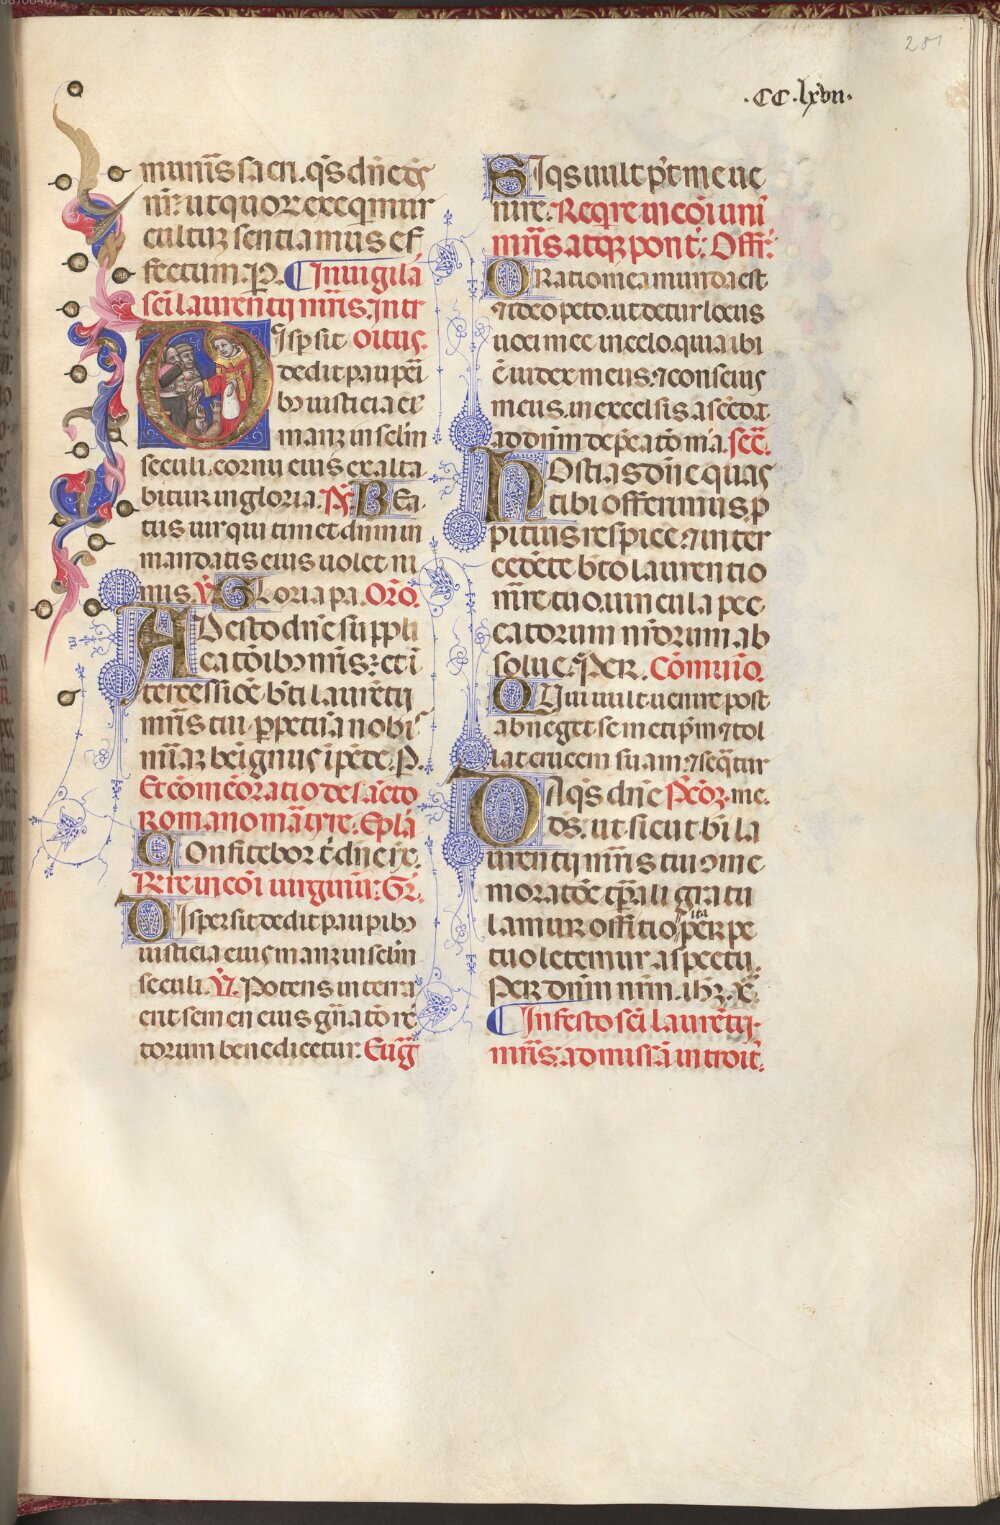 281
.CC.lxvii.
muniis sacri. q̄s dn̄e d̄s
nr̄: ut quor exequimur
cultuz sentiamus ef
fectum. P. In uigilia
scī laurentij mr̄is. Intr
Disp̄sit oitus.
dedit paup̄ei
bȝ iusticia ei᷒
manȝ in sclm̄
seculi. cornu eius exalta
bitur in gloria. p̄s. Bea
tus uir qui timet dnm̄ in
mandatis eius uolet ni
mis. v̄. Gloria pa. Orō.
Adesto dn̄e suppli
catōibȝ nr̄is: et ī
tercessiōe bt̄i laurētij
mr̄is tui. ppetuā nobis
mīaȝ benignus īpēde. P.
Et cōmeōratio de sācto
Romano mātyre. Ep̄la
Confitebor t̄ dn̄e re.
Rr̄e in cōi uirginū: Gr̄.
Dispersit dedit paup̄ibȝ
iusticia eius manȝ in sclm̄
seculi. v̄. Potens in terra
erit semen eius gn̄atō re
ctorum benedicetur. Euḡ
Si q̄s uult p̄t me ue
nire. Reqr̄e in cōi uni᷒
mr̄is atqȝ pont̄: Off̄:
Oratio mea munda est
⁊ ideo peto. ut detur locus
uoci mee in celo. quia ibi
ē iudex meus. ⁊ conscius
meus. in excelsis ascēdat
ad dnm̄ dep̄catō mīa. sec̄.
Hostias dn̄e quas
tibi offerimus p
pitius respice: ⁊ inter
cedēte bt̄o laurentio
mr̄re tuo. uincula pec
catorum nr̄orum ab
solue. Per. Cōmuniō.
Qui uult uenire post
abneget semetip̄m ⁊ tol
lat crucem suam. ⁊ seq̄tur
Da q̄s dn̄e P̄ cōȝ. me.
ds̄. ut sicut bt̄i la
urentij mr̄is tui ɔme
moratōe tp̄ali gratu
lamur offitio ita per pe
tuo letemur aspectu.
Per dnm̄ nrm̄. ihȝ. xp̄.
In festo scī laurētij.
mr̄is. ad missā introit̄.